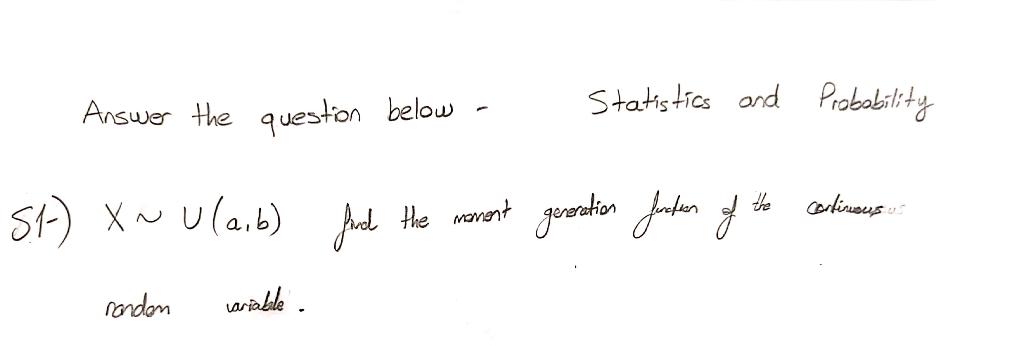 Answer the question below - Statistics and Probability
S1-) X ~ U(a,b) find the moment generation function of the continuous
random variable.